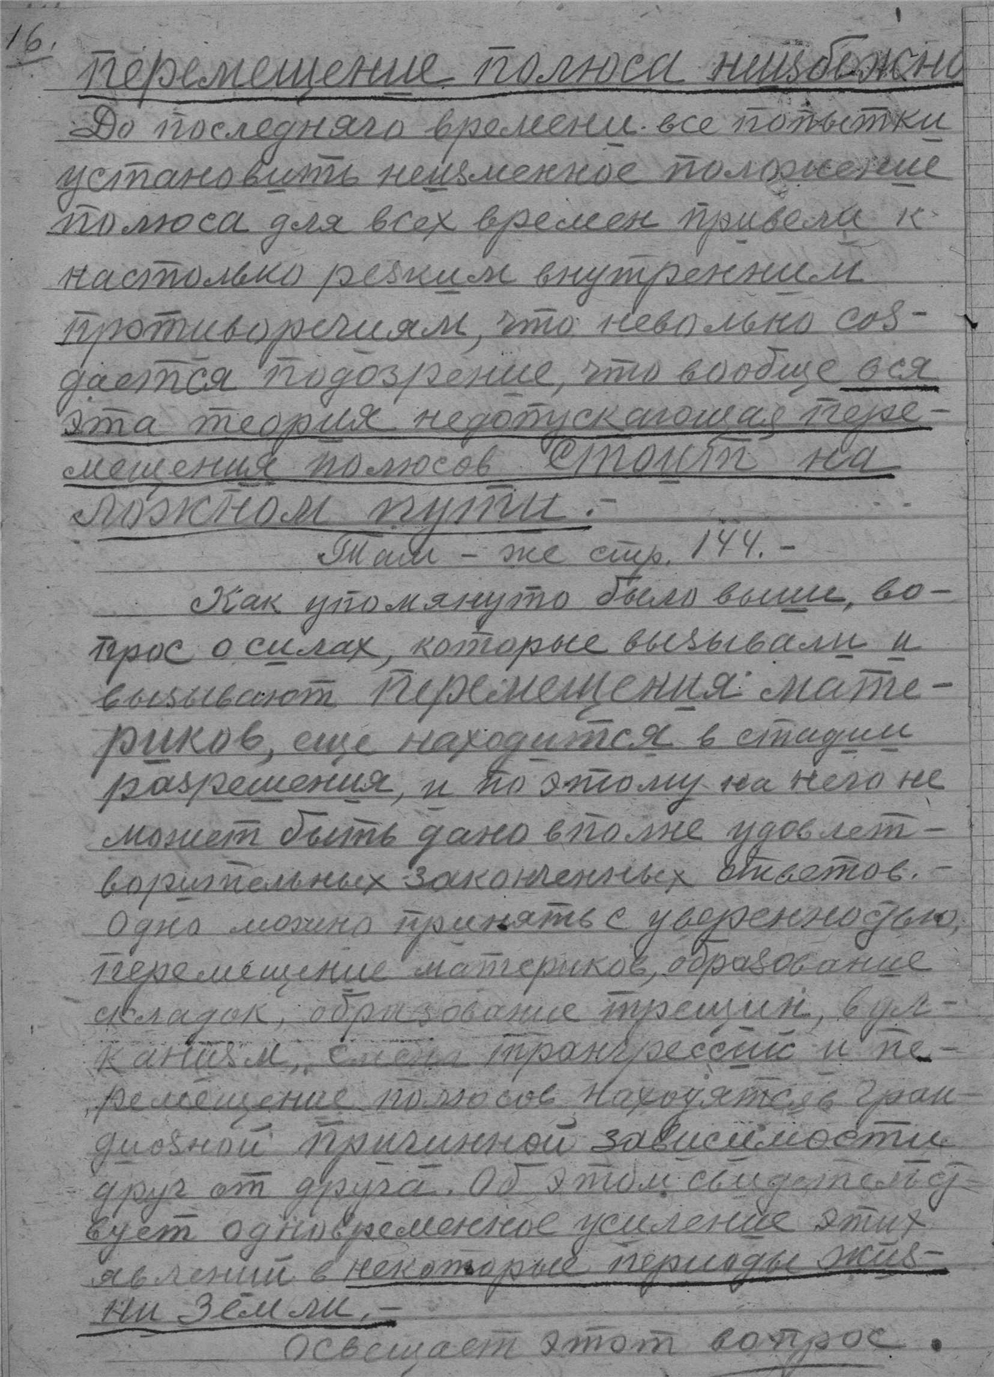 16.
Перемещение полюса неизбежно
До последняго времени все попытки
установить неизменное положение
полюса для всех времен привели к
настолько резким внутренним
противоречиям, что невольно соз-
дается подозрение, что вообще вся
эта теория недопускающая пере-
мещения полюсов стоит на
ложном пути. -
Там - же стр. 144. -
Как упомянуто было выши, во-
прос о силах, которые вызывали и
вызывают перемещения мате-
риков, еще находится в стадии
разрешения, и поэтому на него не
может быть дано вполне удовлет-
ворительных законченных ответов. -
Одно можно принять с уверенностью,
перемещение материков, образование
складок, образование трещин, вул-
канизм, смена трангрессий и пе-
ремещение полюсов находятся в гран-
диозной причинной зависимости
друг от друга. Об этом свидетельст-
вует одновременное усиление этих
явлений в некоторые периоды жиз-
ни Земли. -
Освещает этот вопрос.